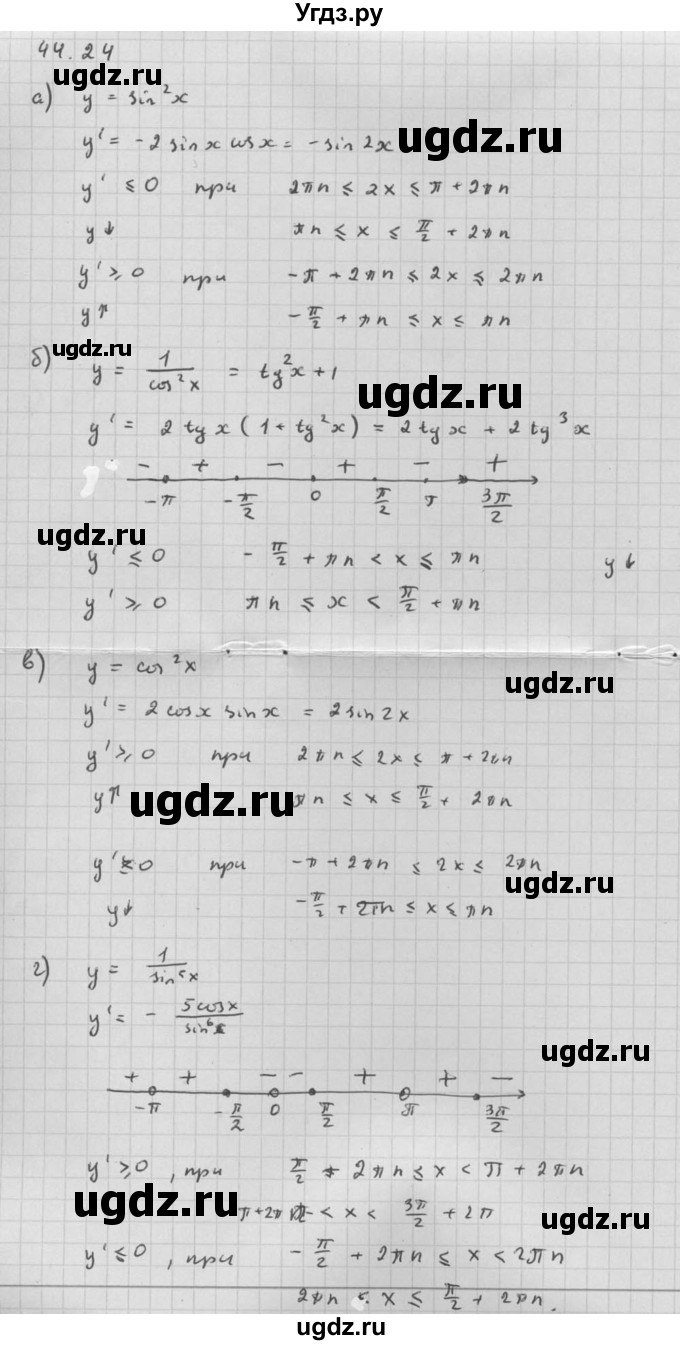 Угдз.ру
44.24
ugdz.ru
а) y = sin²x
y' = -2 sin x cos x = - sin 2x
ugdz.ru
y' ≤ 0 при 2πn ≤ 2x ≤ π + 2πn
y↓ πn ≤ x ≤ π/2 + 2πn
y' ≥ 0 при -π + 2πn ≤ 2x ≤ 2πn
y↑ -π/2 + πn ≤ x ≤ πn
ugdz.ru
б) y = 1/cos²x = tg²x + 1
ugdz.ru
y' = 2 tg x (1 + tg²x) = 2 tg x + 2 tg³x
- + - + - +
-π -π/2 0 π/2 π 3π/2
ugdz.ru
y' ≤ 0 -π/2 + πn < x ≤ πn y↓
y' ≥ 0 πn ≤ x < π/2 + πn
в) y = cos²x
ugdz.ru
y' = 2 cos x sin x = 2 sin 2x
y' ≥ 0 при 2πn ≤ 2x ≤ π + 2πn
y↑ πn ≤ x ≤ π/2 + 2πn
ugdz.ru
y' ≤ 0 при -π + 2πn ≤ 2x ≤ 2πn
ugdz.ru
y↓ -π/2 + 2πn ≤ x ≤ πn
г) y = 1/sin⁵x
y' = - 5cos x/sin⁶x
ugdz.ru
+ + - - + + -
-π -π/2 0 π/2 π 3π/2
y' ≥ 0, при π/2 + 2πn ≤ x < π + 2πn
ugdz.ru
π + 2πn < x < 3π/2 + 2π
ugdz.ru
y' ≤ 0, при -π/2 + 2πn ≤ x < 2πn
2πn < x ≤ π/2 + 2πn.
ugdz.ru